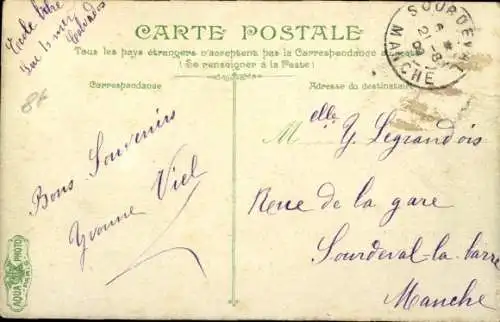 CARTE POSTALE
Tous les pays étrangers n'acceptent pas la Correspondance au recto
(Se renseigner à la Poste)
Correspondance
Adresse du destinataire
SOURDEVAL
MANCHE
86
Bons Souvenirs
Yvonne Viel
Melle Y. Legrandois
Rue de la gare
Sourdeval-la barre
Manche
AQUA PHOTO
PARIS
Calvados